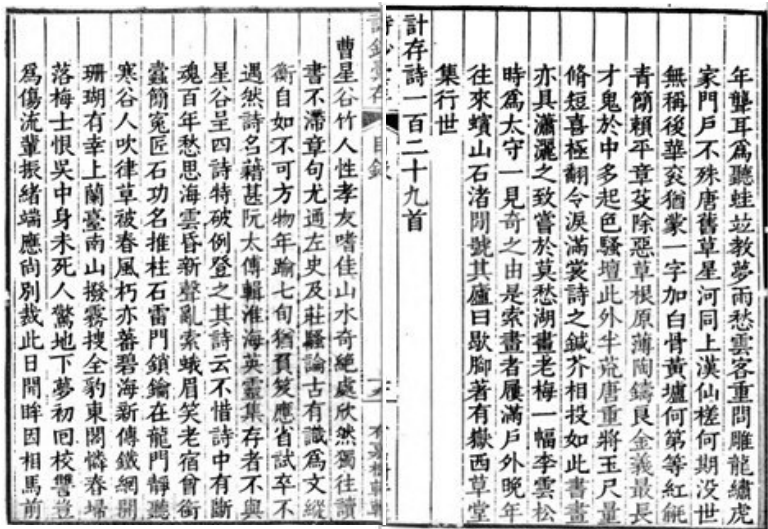 年聾耳爲聽蛙竝教夢雨愁雲客重問雕龍繡虎
家門戶不殊唐舊草星河同上漢仙槎何期沒世
無稱後華袞猶蒙一字加白骨黃壚何第等紅
青簡賴平章芟除惡草根原薄陶鑄良金義最長
才鬼於中多起色騷壇此外半荒唐重將玉尺量
脩短喜極翻令淚滿裳詩之鍼芥相投如此書畫
亦具瀟灑之致嘗於莫愁湖畫老梅一幅李雲松
時爲太守一見奇之由是索畫者屨滿戶外晚年
往來蠙山石渚閒號其廬曰歇脚著有嶽西草堂
集行世
計存詩一百二十九首
目錄
曹星谷竹人性孝友嗜佳山水奇絕處欣然獨往讀
書不滯章句尤通左史及莊騷論古有識爲文縱
衡自如不可方物年踰七旬猶負笈應省試卒不
遇然詩名藉甚阮太傅輯淮海英靈集存者不與
星谷呈四詩特破例登之其詩云不惜詩中有斷
魂百年愁思海雲昏新聲亂索蛾眉笑老宿曾銜
蠹簡冤匠石功名推柱石雷門鎖鑰在龍門靜聽
寒谷人吹律草被春風朽亦蕃碧海新傳鐵網開
珊瑚有幸上蘭臺南山撥霧搜全豹東閣憐春埽
落梅士恨吳中身未死人驚地下夢初回校讐豈
爲傷流輩振緒端應尚別裁此日閒眸因相馬前